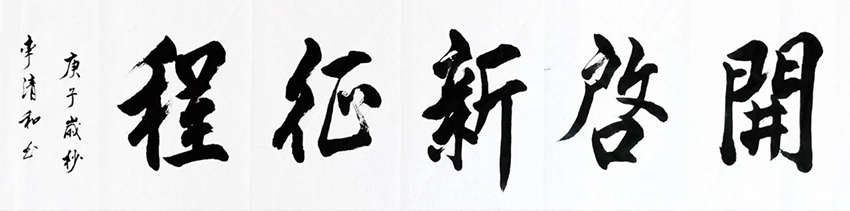 開啓新征程
庚子歲杪
李清和书